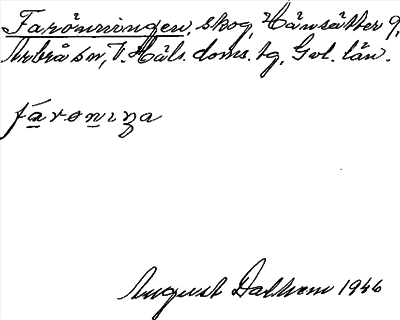 Farönningen, skog, Hänsätter 9,
Arbrå sn, V. Häls. doms. tg, Gvl. län.
fároniŋa
August Dalhem 1946